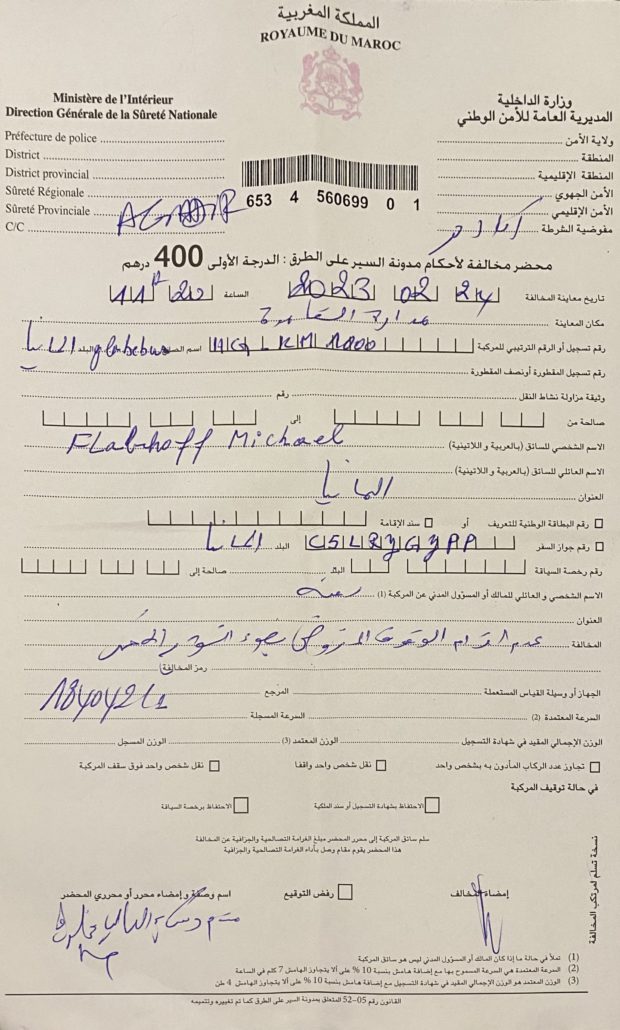 المملكة المغربية
ROYAUME DU MAROC
Ministère de l'Intérieur
Direction Générale de la Sûreté Nationale
Préfecture de police
District
District provincial
Sûreté Régionale
Sûreté Provinciale
C/C
AGADIR
وزارة الداخلية
المديرية العامة للأمن الوطني
ولاية الأمن
المنطقة
المنطقة الإقليمية
الأمن الجهوي
الأمن الإقليمي
مفوضية الشرطة
653 4 560699 0 1
محضر مخالفة لأحكام مدونة السير على الطرق : الدرجة الأولى 400 درهم
تاريخ معاينة المخالفة 24 02 2023 الساعة 11h 20
مكان المعاينة
رقم تسجيل أو الرقم الترتيبي للمركبة HG KM 1000 اسم الصانع globebus البلد ألمانيا
رقم تسجيل المقطورة أونصف المقطورة
وثيقة مزاولة نشاط النقل رقم
صالحة من إلى
الاسم الشخصي للسائق (بالعربية و اللاتينية) Michael
الاسم العائلي للسائق (بالعربية و اللاتينية)
العنوان ألمانيا
رقم البطاقة الوطنية للتعريف أو سند الإقامة
رقم جواز السفر البلد ألمانيا
رقم رخصة السياقة البلد صالحة إلى
الاسم الشخصي و العائلي للمالك أو المسؤول المدني عن المركبة (1) نفسه
العنوان
المخالفة عدم احترام الوقوف المفروض بضوء التشوير الأحمر
رمز المخالفة
الجهاز أو وسيلة القياس المستعملة المرجع
السرعة المعتمدة (2) السرعة المسجلة
الوزن الإجمالي المقيد في شهادة التسجيل الوزن المعتمد (3) الوزن المسجل
تجاوز عدد الركاب المأذون به بشخص واحد نقل شخص واحد واقفا نقل شخص واحد فوق سقف المركبة
في حالة توقيف المركبة
الاحتفاظ بشهادة التسجيل أو سند الملكية الاحتفاظ برخصة السياقة
سلم سائق المركبة إلى محرر المحضر مبلغ الغرامة التصالحية والجزافية عن المخالفة
هذا المحضر يقوم مقام وصل بأداء الغرامة التصالحية والجزافية
إمضاء المخالف رفض التوقيع اسم وصفة و إمضاء محرر أو محرري المحضر
نسخة تسلم لمرتكب المخالفة
(1) تملأ في حالة ما إذا كان المالك أو المسؤول المدني ليس هو سائق المركبة
(2) السرعة المعتمدة هي السرعة المسموح بها مع إضافة هامش بنسبة 10 % على ألا يتجاوز الهامش 7 كلم في الساعة
(3) الوزن المعتمد هو الوزن الإجمالي المقيد في شهادة التسجيل مع إضافة هامش بنسبة 10 % على ألا يتجاوز الهامش 4 طن
القانون رقم 05-52 المتعلق بمدونة السير على الطرق كما تم تغييره وتتميمه